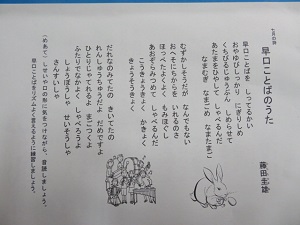 七月の詩
早口ことばのうた
藤田圭雄
早口ことばを しってるかい
おやゆびしっかり にぎりしめ
くちびるじゅうぶん しめらせて
あたまをひやして しゃべるんだ
なまむぎ なまごめ なまたまご
むずかしそうだが なんでもない
おへそにちからを いれるのさ
ほっぺたよくよく もみほぐし
あおぞらみつめて しゃべるんだ
ここきょうきょく かきょく
きょうそうきょく
だれなのみてたの きいてたの
れんしゅうちゅうだよ だめですよ
ひとりじゃてれるよ まごつくよ
ふたりでなかよく しゃべろうよ
さんすいしゃ
しょうぼうしゃ せいそうしゃ
早口ことばをリズムよく言えるように練習しましょう。